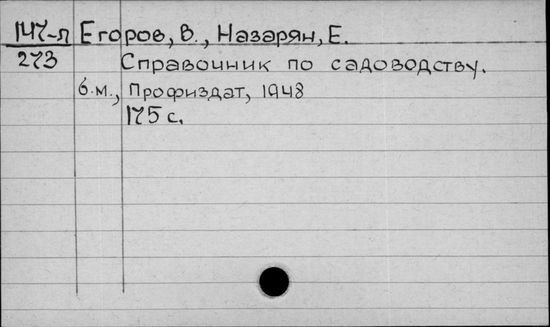 147-л Егоров, В., Назарян, Е.
273 Справочник по садоводству.
б.м., Профиздат, 1948
175 с.